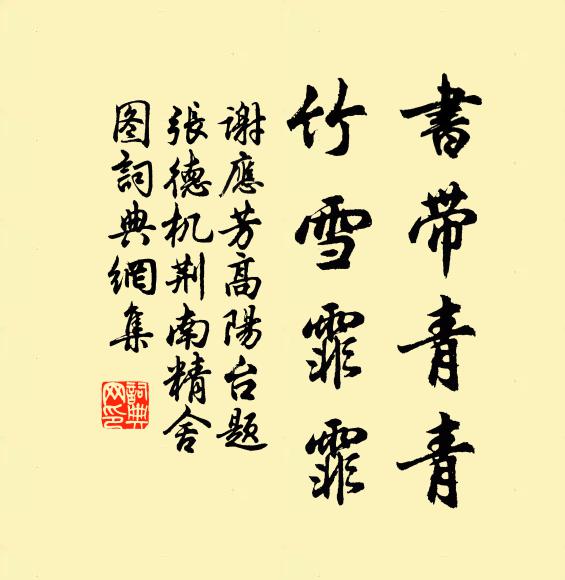 書帶青青
竹雪霏霏
謝應芳高陽台题
張德机荆南精舍
图詞典網集
詞典网印